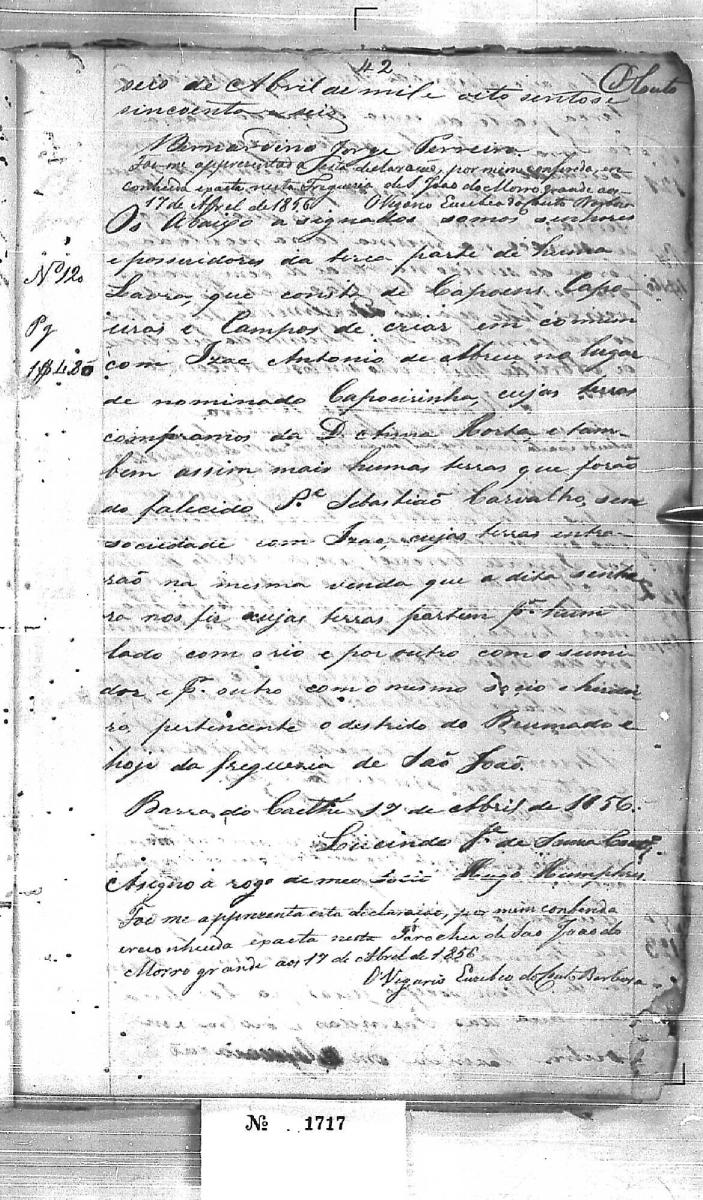 42
DCouto
seis de Abril de mil e oito sentos e
sincoenta e seis
Bernardino Jorge Ferreira
Foi me appresentada esta declaração, por mim conferida, e re
conhecida exacta nesta Freguezia de S. João do Morro grande aos
17 de Abril de 1856 O Vigario Euzebio do Couto Barbosa
Os Abaixo a signados somos senhores
e possuidores da terça parte de huma
Nº 120
Lavra, que consta de Capoens Capo
eiras e Campos de criar em comum
Pg
1$420
com Izac Antonio de Abreu no lugar
de nominado Capoeirinha, cujas terras
compramos da D. Anna Horta, e tam
bem assim mais humas terras que forão
do falecido Pe. Sebastião Carvalho, sem
sociedade com Izac, cujas terras entra-
rão na mesma venda que a dita senho
ra nos fez cujas terras partem pr. hum
lado com o rio e por outro com o sumi
dor e pr. outro com o mesmo socio e
ro, pertincente o destrito do Brumado e
hoje da freguezia de São João.
Barra do Caethé 17 de Abril de 1856.
Lucindo Je. de Souza
Asigno a rogo de meo socio Hugo Humphres
Foi me apprezenta esta declaração, por mim conferida
e reconhecida exacta nesta Parochia de São João do
Morro grande aos 17 de Abril de 1856
O Vigario Euzebio do Couto Barbosa
Nº 1717